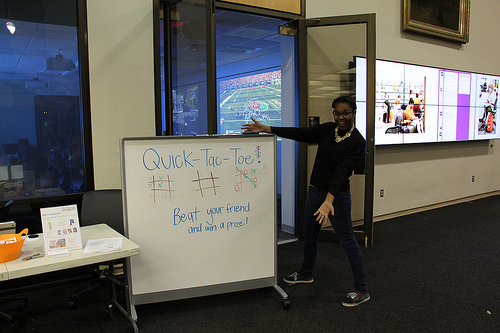 QUICK-Tac-Toe!
Beat your friend
and win a prize!